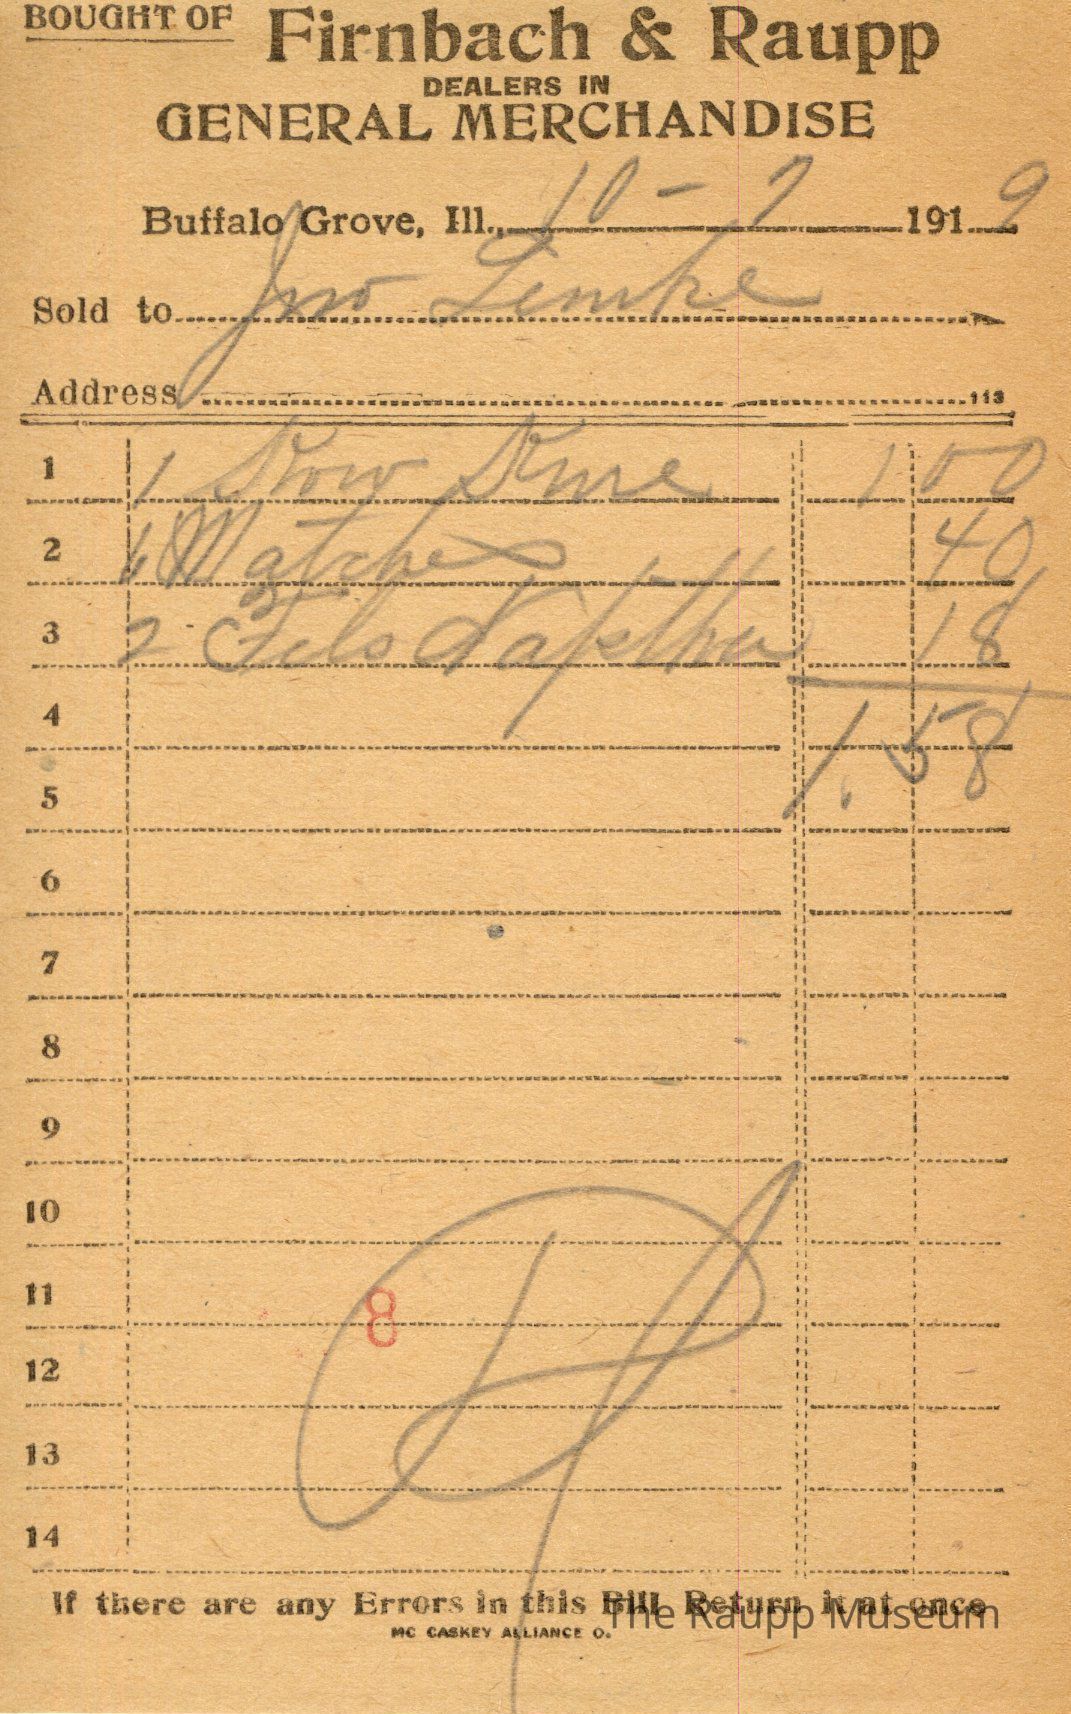 BOUGHT OF Firnbach & Raupp
DEALERS IN
GENERAL MERCHANDISE
Buffalo Grove, Ill., 10-7 1919
Sold to Jno Lemke
Address 113
1 1 1 00
2 6 Matches 40
3 2 Fels Naptha 18
4 1.58
5
6
7
8
9
10
11
8
12
13
14
If there are any Errors in this Bill Return it at once
The Raupp Museum
MC CASKEY ALLIANCE O.